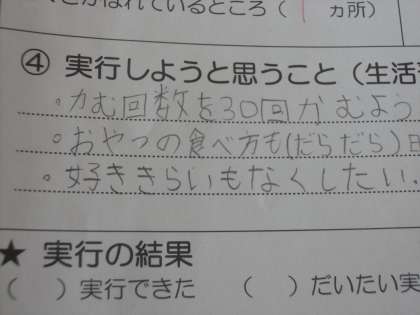 くとかばれているところ( 1 カ所)
④ 実行しようと思うこと(生活
。かむ回数を30回かむよう
。おやつの食べ方も(だらだら)
。好ききらいもなくしたい.
★ 実行の結果
( )実行できた ( )だいたい実